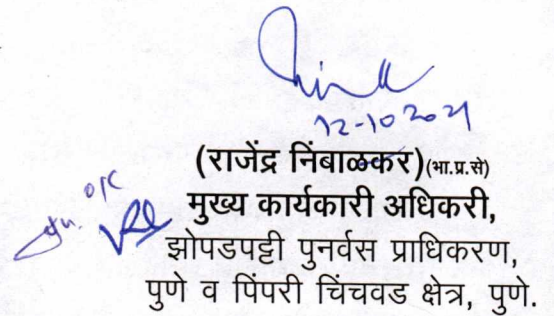 12-10-2021
(राजेंद्र निंबाळकर)(भा.प्र.से)
मुख्य कार्यकारी अधिकरी,
झोपडपट्टी पुनर्वस प्राधिकरण,
पुणे व पिंपरी चिंचवड क्षेत्र, पुणे.